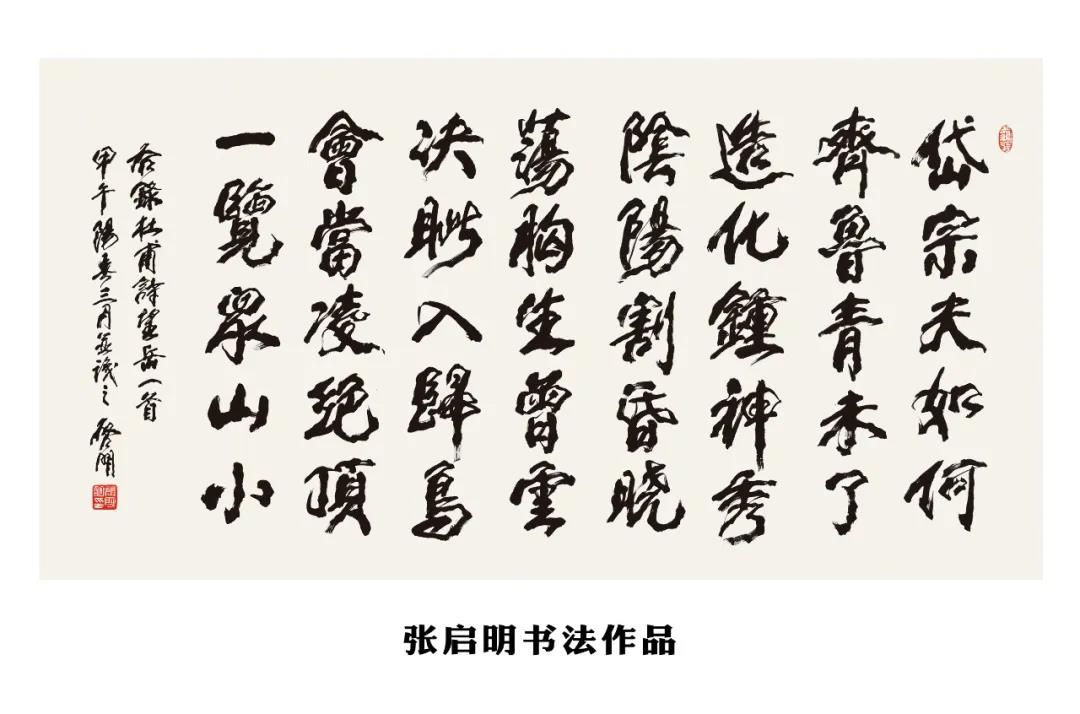 岱宗夫如何
齊魯青未了
造化鍾神秀
陰陽割昏晓
蕩胸生曾雲
决眦入歸鳥
會當凌絕頂
一覽眾山小
錄杜甫詩望岳一首
甲午陽春三月並識之 啓明
张启明书法作品